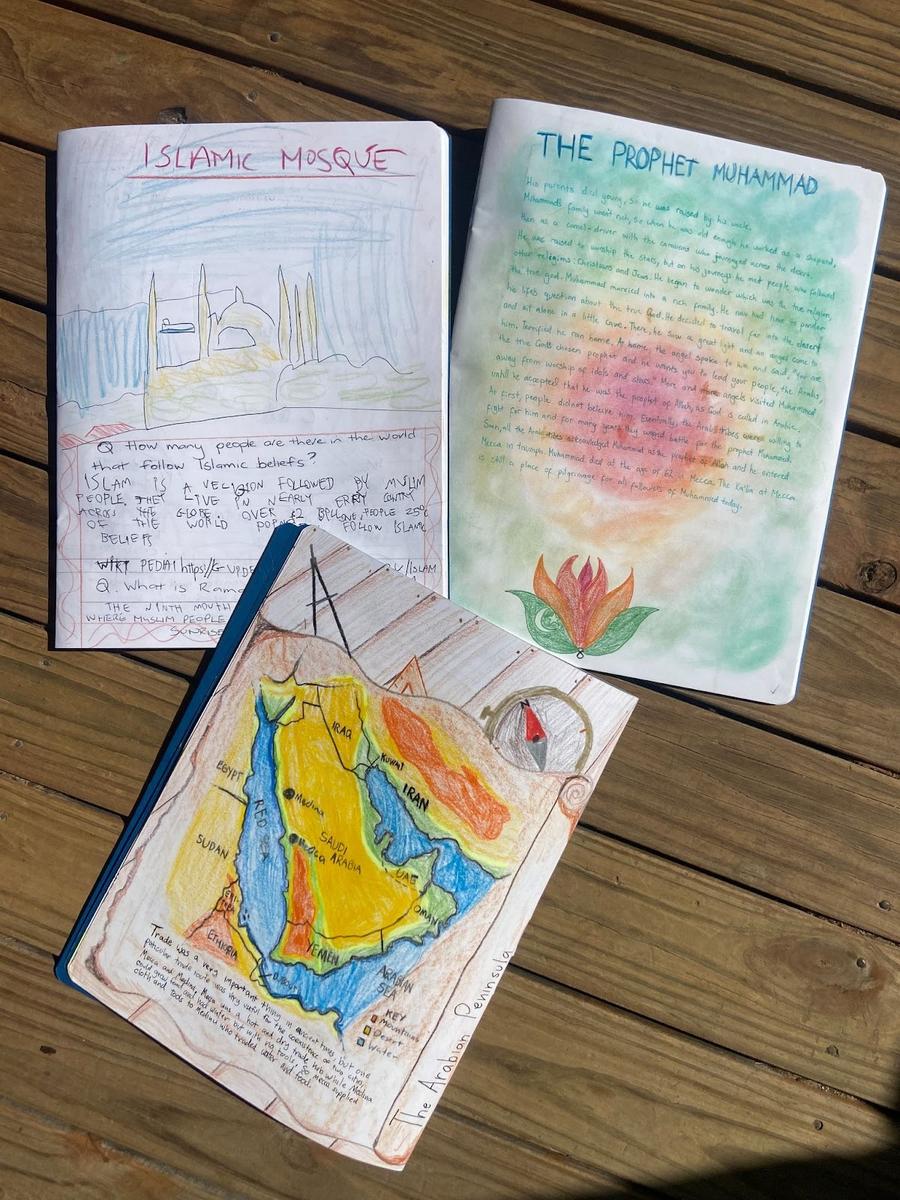 ISLAMIC MOSQUE
Q How many people are there in the world
that follow Islamic beliefs?
ISLAM IS A RELIGION FOLLOWED BY MUSLIM
PEOPLE THEY LIVE IN NEARLY
ACROSS THE GLOBE. OVER PEOPLE 25%
OF THE WORLD FOLLOW ISLAMIC
BELIEFS
https://
/ISLAM
Q. What is
THE NINTH MONTH
WHERE MUSLIM PEOPLE
SUNRISE
THE PROPHET MUHAMMAD
His parents died young, so he was raised by his uncle.
Muhammad's family wasn't rich, so when he was old enough he worked as a shepard,
then as a camel-driver with the caravans who journeyed across the desert.
He was raised to worship the stars, but on his journeys he met people who followed
other religions: Christians and Jews. He began to wonder which was the true religion,
the true god. Muhammad married into a rich family. He now had time to ponder
his life's question about the true God. He decided to travel far into the desert
and sit alone in a little cave. There, he saw a great light and an angel came to
him. Terrified he ran home. At home the angel spoke to him and said, "You are
the true God's chosen prophet and he wants you to lead your people, the Arabs,
away from worship of idols and stars." More and more angels visited Muhammad
until he accepted that he was the prophet of Allah, as God is called in Arabic.
At first, people did not believe him. Eventually, the Arab tribes were willing to
fight for him and for many years they waged battle for the prophet Muhammad.
Soon, all the Arab tribes acknowledged Muhammad as the prophet of Allah and he entered
Mecca in triumph. Muhammad died at the age of 62 in Mecca. The Ka'ba at Mecca
is still a place of pilgrimage for all followers of Muhammed today.
N
IRAQ
KUWAIT
IRAN
EGYPT
RED SEA
Medina
Mecca
SAUDI
ARABIA
SUDAN
UAE
OMAN
ETHIOPIA
YEMEN
ARABIAN
SEA
KEY
Mountains
Desert
Water
Trade was a very important thing in ancient times, but one
particular trade route was very useful for the coexistence of two cities,
Mecca and Medina. Mecca was a hot and dry trade hub while Medina
could grow food and had water but with no tools. So Mecca supplied
cloth and tools to Medina who traded water and food.
The Arabian Peninsula